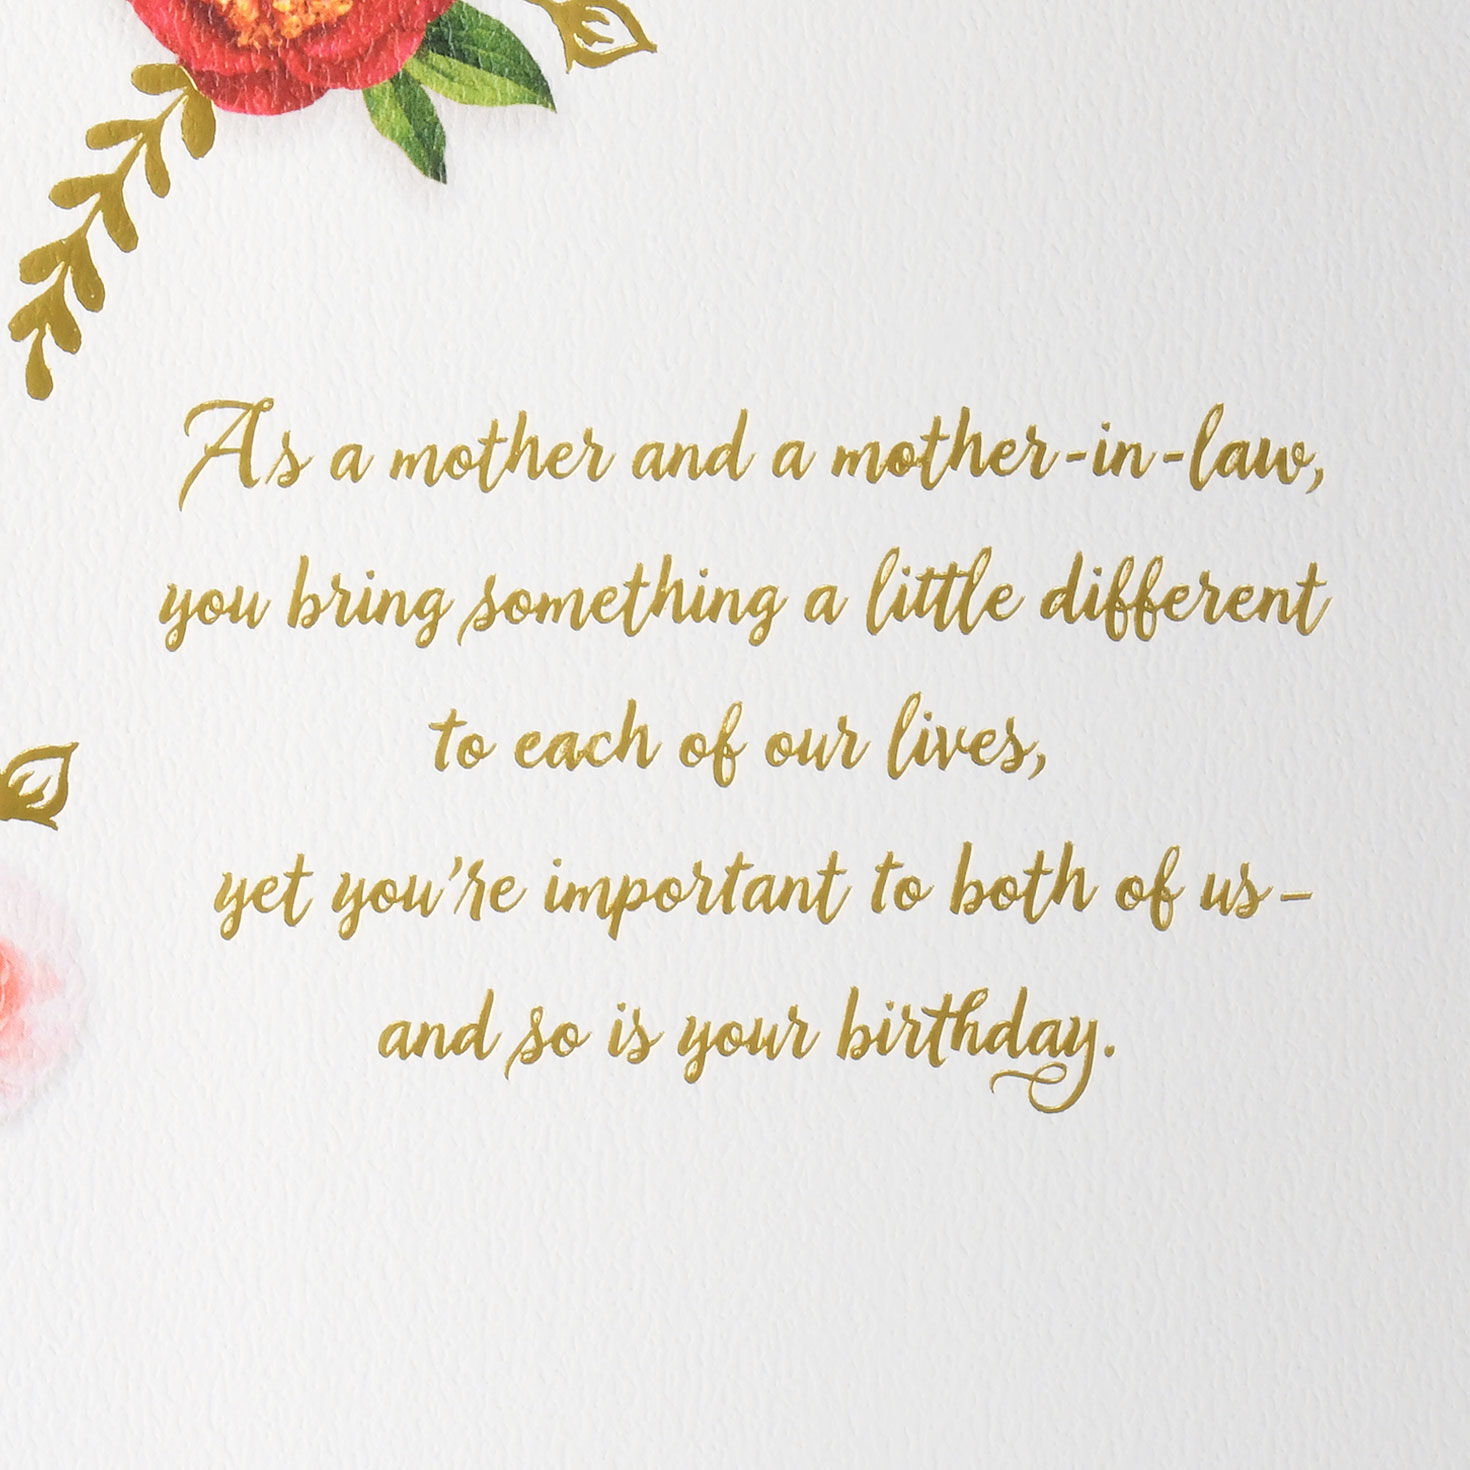 As a mother and a mother-in-law,
you bring something a little different
to each of our lives,
yet you're important to both of us–
and so is your birthday.